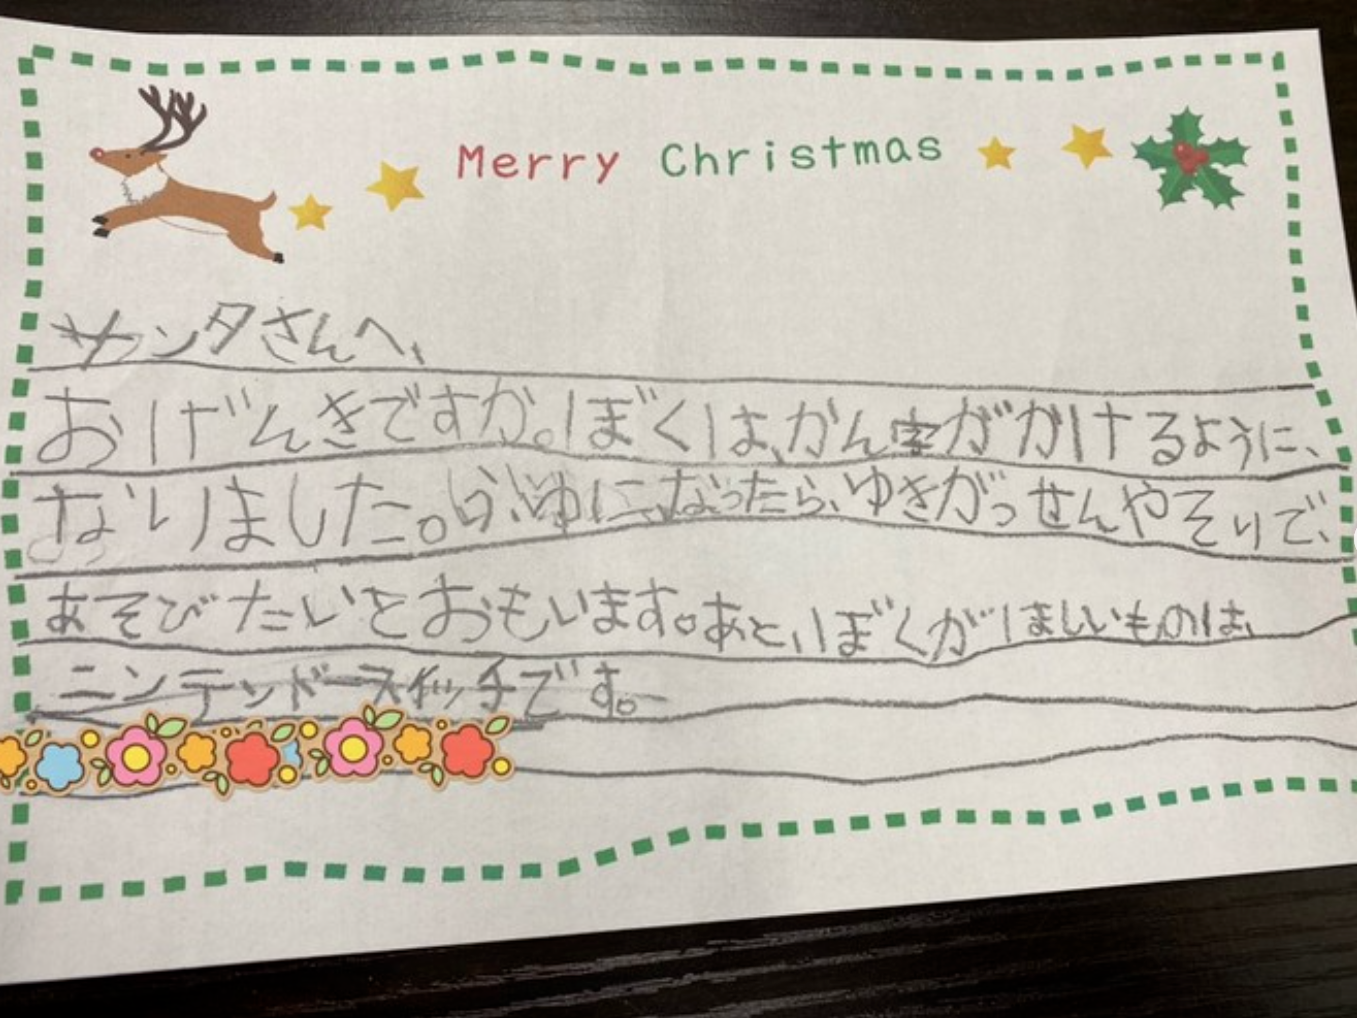 Merry Christmas
サンタさんへ、
おげんきですか。ぼくは、かん字がかけるように、
なりました。ふゆに、なったら、ゆきがっせんやそりで、
あそびたいとおもいます。あと、ぼくがほしいものは、
ニンテンドースイッチです。